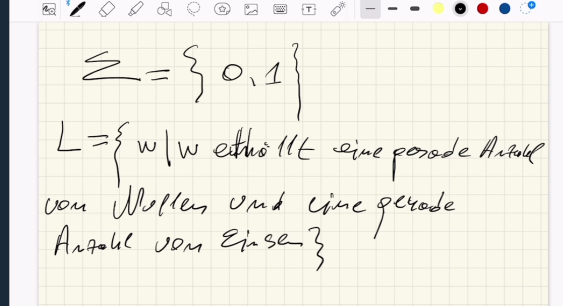 Σ = { 0,1}
L = { w | w ethällt eine gerade Anzahl
von Nullen und eine gerade
Anzahl von Einsen}